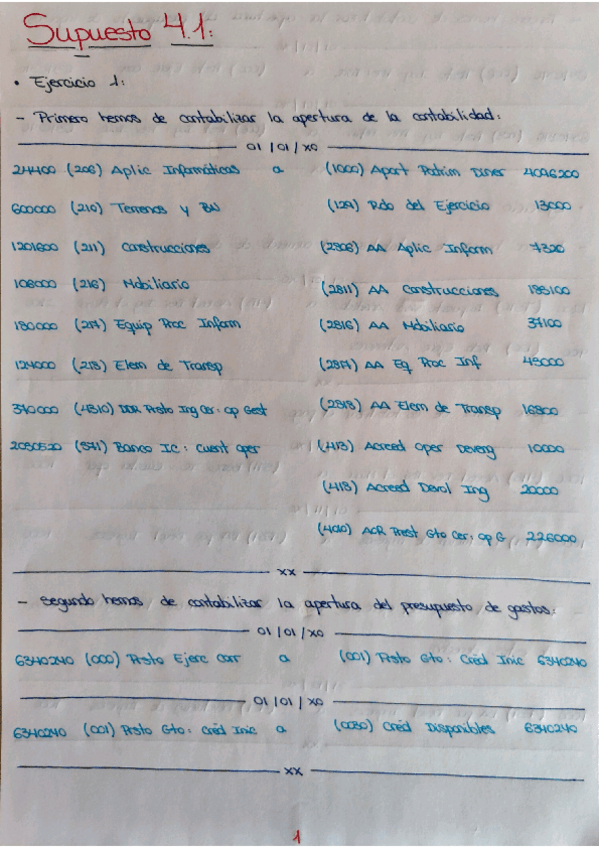 Supuesto 4.1:
• Ejercicio 1:
- Primero hemos de contabilizar la apertura de la contabilidad:
01 / 01 / X0
24400 (206) Aplic Informáticas a (1000) Aport Patrim Diner 4096200
600000 (210) Terrenos y BN (129) Rdo del Ejercicio 13000
1201600 (211) Construcciones (2806) AA Aplic Inform 7320
108000 (216) Mobiliario (2811) AA Construcciones
180000 (217) Equip Proc Inform (2816) AA Mobiliario 37100
124000 (218) Elem de Transp (2817) AA Eq Proc Inf 45000
370000 (4310) DDR Psto Ing Cer: op Gest (2818) AA Elem de Transp 16800
(571) Banco IC: Cuent oper (413) Acreed Oper Deveng 10000
(418) Acreed Devol Ing 20000
(4010) ACR Prest Gto Cer, op G 226000
XX
- Segundo hemos de contabilizar la apertura del presupuesto de gastos:
01 / 01 / X0
6340240 (000) Psto Ejerc Corr a (001) Psto Gto: Créd Inic 6340240
01 / 01 / X0
6340240 (001) Psto Gto: Créd Inic a (0030) Créd Disponibles 6340240
XX
1